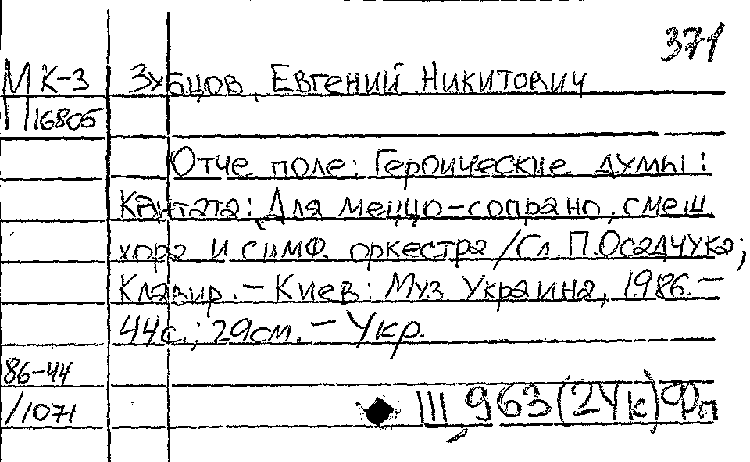 371
МК-3 Зубцов, Евгений Никитович
П16805
Отче поле: Героические думы:
Кантата: Для меццо-сопрано, смеш.
хора и симф. оркестра/Сл. П.Осадчука;
Клавир. – Киев: Муз Украина, 1986. –
44с.; 29см. – Укр.
86-44
/1071
III 963(2Ук)Фп